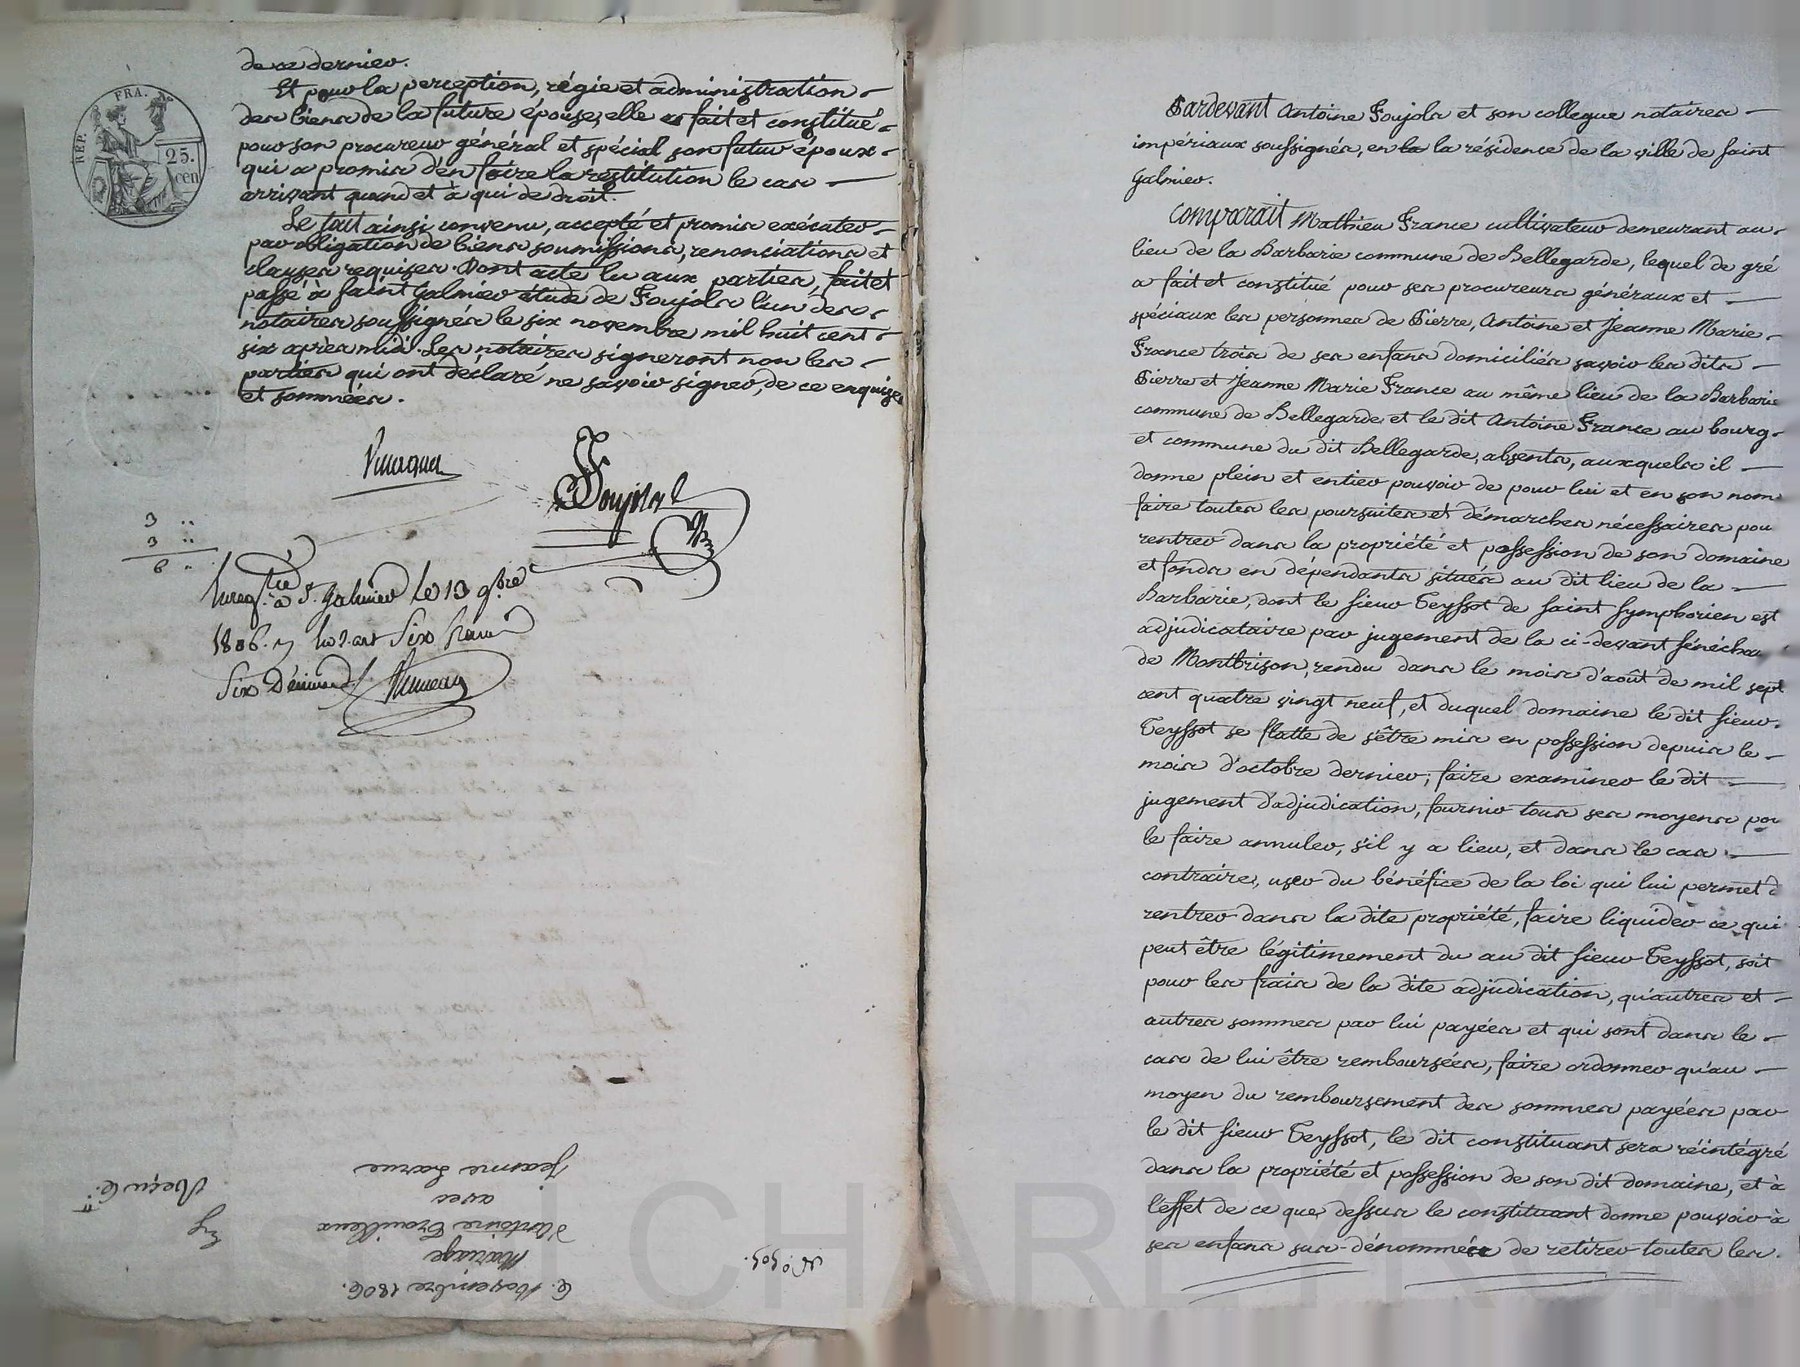 REP. FRA.
25.
cen
de ce dernier.
Et pour la perception, régie et administration
des biens de la future épouse, elle a fait et constitué
pour son procureur général et spécial son futur époux
qui a promis d'en faire la restitution le cas
arrivant quand et à qui de droit.
Le tout ainsi convenu, accepté et promis exécuter
par obligation de biens soumissions, renonciations et
clauses requises. Dont acte lu aux parties, fait et
passé à Saint Galmier étude de Poujols l'un des
notaires soussignés le six novembre mil huit cent
six après midi. Les notaires signeront non les
parties qui ont déclaré ne savoir signer, de ce enquises
et sommées.
Poujols
3
3
6
Enregtré à St. Galmier le 13 9bre
1806.
Six
N° 303.
6. Novembre 1806.
Mariage
d'Antoine Trouilleux
avec
Jeanne Larue
Pardevant Antoine Poujols et son collegue notaires
impériaux soussignés, en la la résidence de la ville de Saint
Galmier.
Comparait Mathieu France cultivateur demeurant au
lieu de la Barbarie commune de Bellegarde, lequel de gré
a fait et constitué pour ses procureurs généraux et
spéciaux les personnes de Pierre, Antoine et Jeanne Marie
France trois de ses enfans domiciliés savoir les dits
Pierre et Jeanne Marie France au même lieu de la Barbarie
commune de Bellegarde et le dit Antoine France au bourg
et commune du dit Bellegarde, absents, auxquels il
donne plein et entier pouvoir de pour lui et en son nom
faire toutes les poursuites et démarches nécessaires pou
rentrer dans la propriété et possession de son domaine
et fonds en dépendants situés au dit lieu de la
Barbarie, dont le sieur Teyssot de Saint Symphorien est
adjudicataire par jugement de la ci-devant sénéchau
de Montbrison, rendu dans le mois d'août de mil sept
cent quatre vingt neuf, et duquel domaine le dit sieur
Teyssot se flatte de s'être mis en possession depuis le
mois d'octobre dernier; faire examiner le dit
jugement d'adjudication, fournir tous ses moyens pou
le faire annuler, s'il y a lieu, et dans le cas
contraire, user du bénéfice de la loi qui lui permet d
rentrer dans la dite propriété, faire liquider ce qui
peut être légitimement du au dit sieur Teyssot, soit
pour les frais de la dite adjudication, qu'autres et
autres sommes par lui payées et qui sont dans le
cas de lui être remboursées, faire ordonner qu'au
moyen du remboursement des sommes payées par
le dit sieur Teyssot, le dit constituant sera réintégré
dans la propriété et possession de son dit domaine, et à
l'effet de ce que dessus le constituant donne pouvoir à
ses enfans sus-dénommés de retirer toutes les